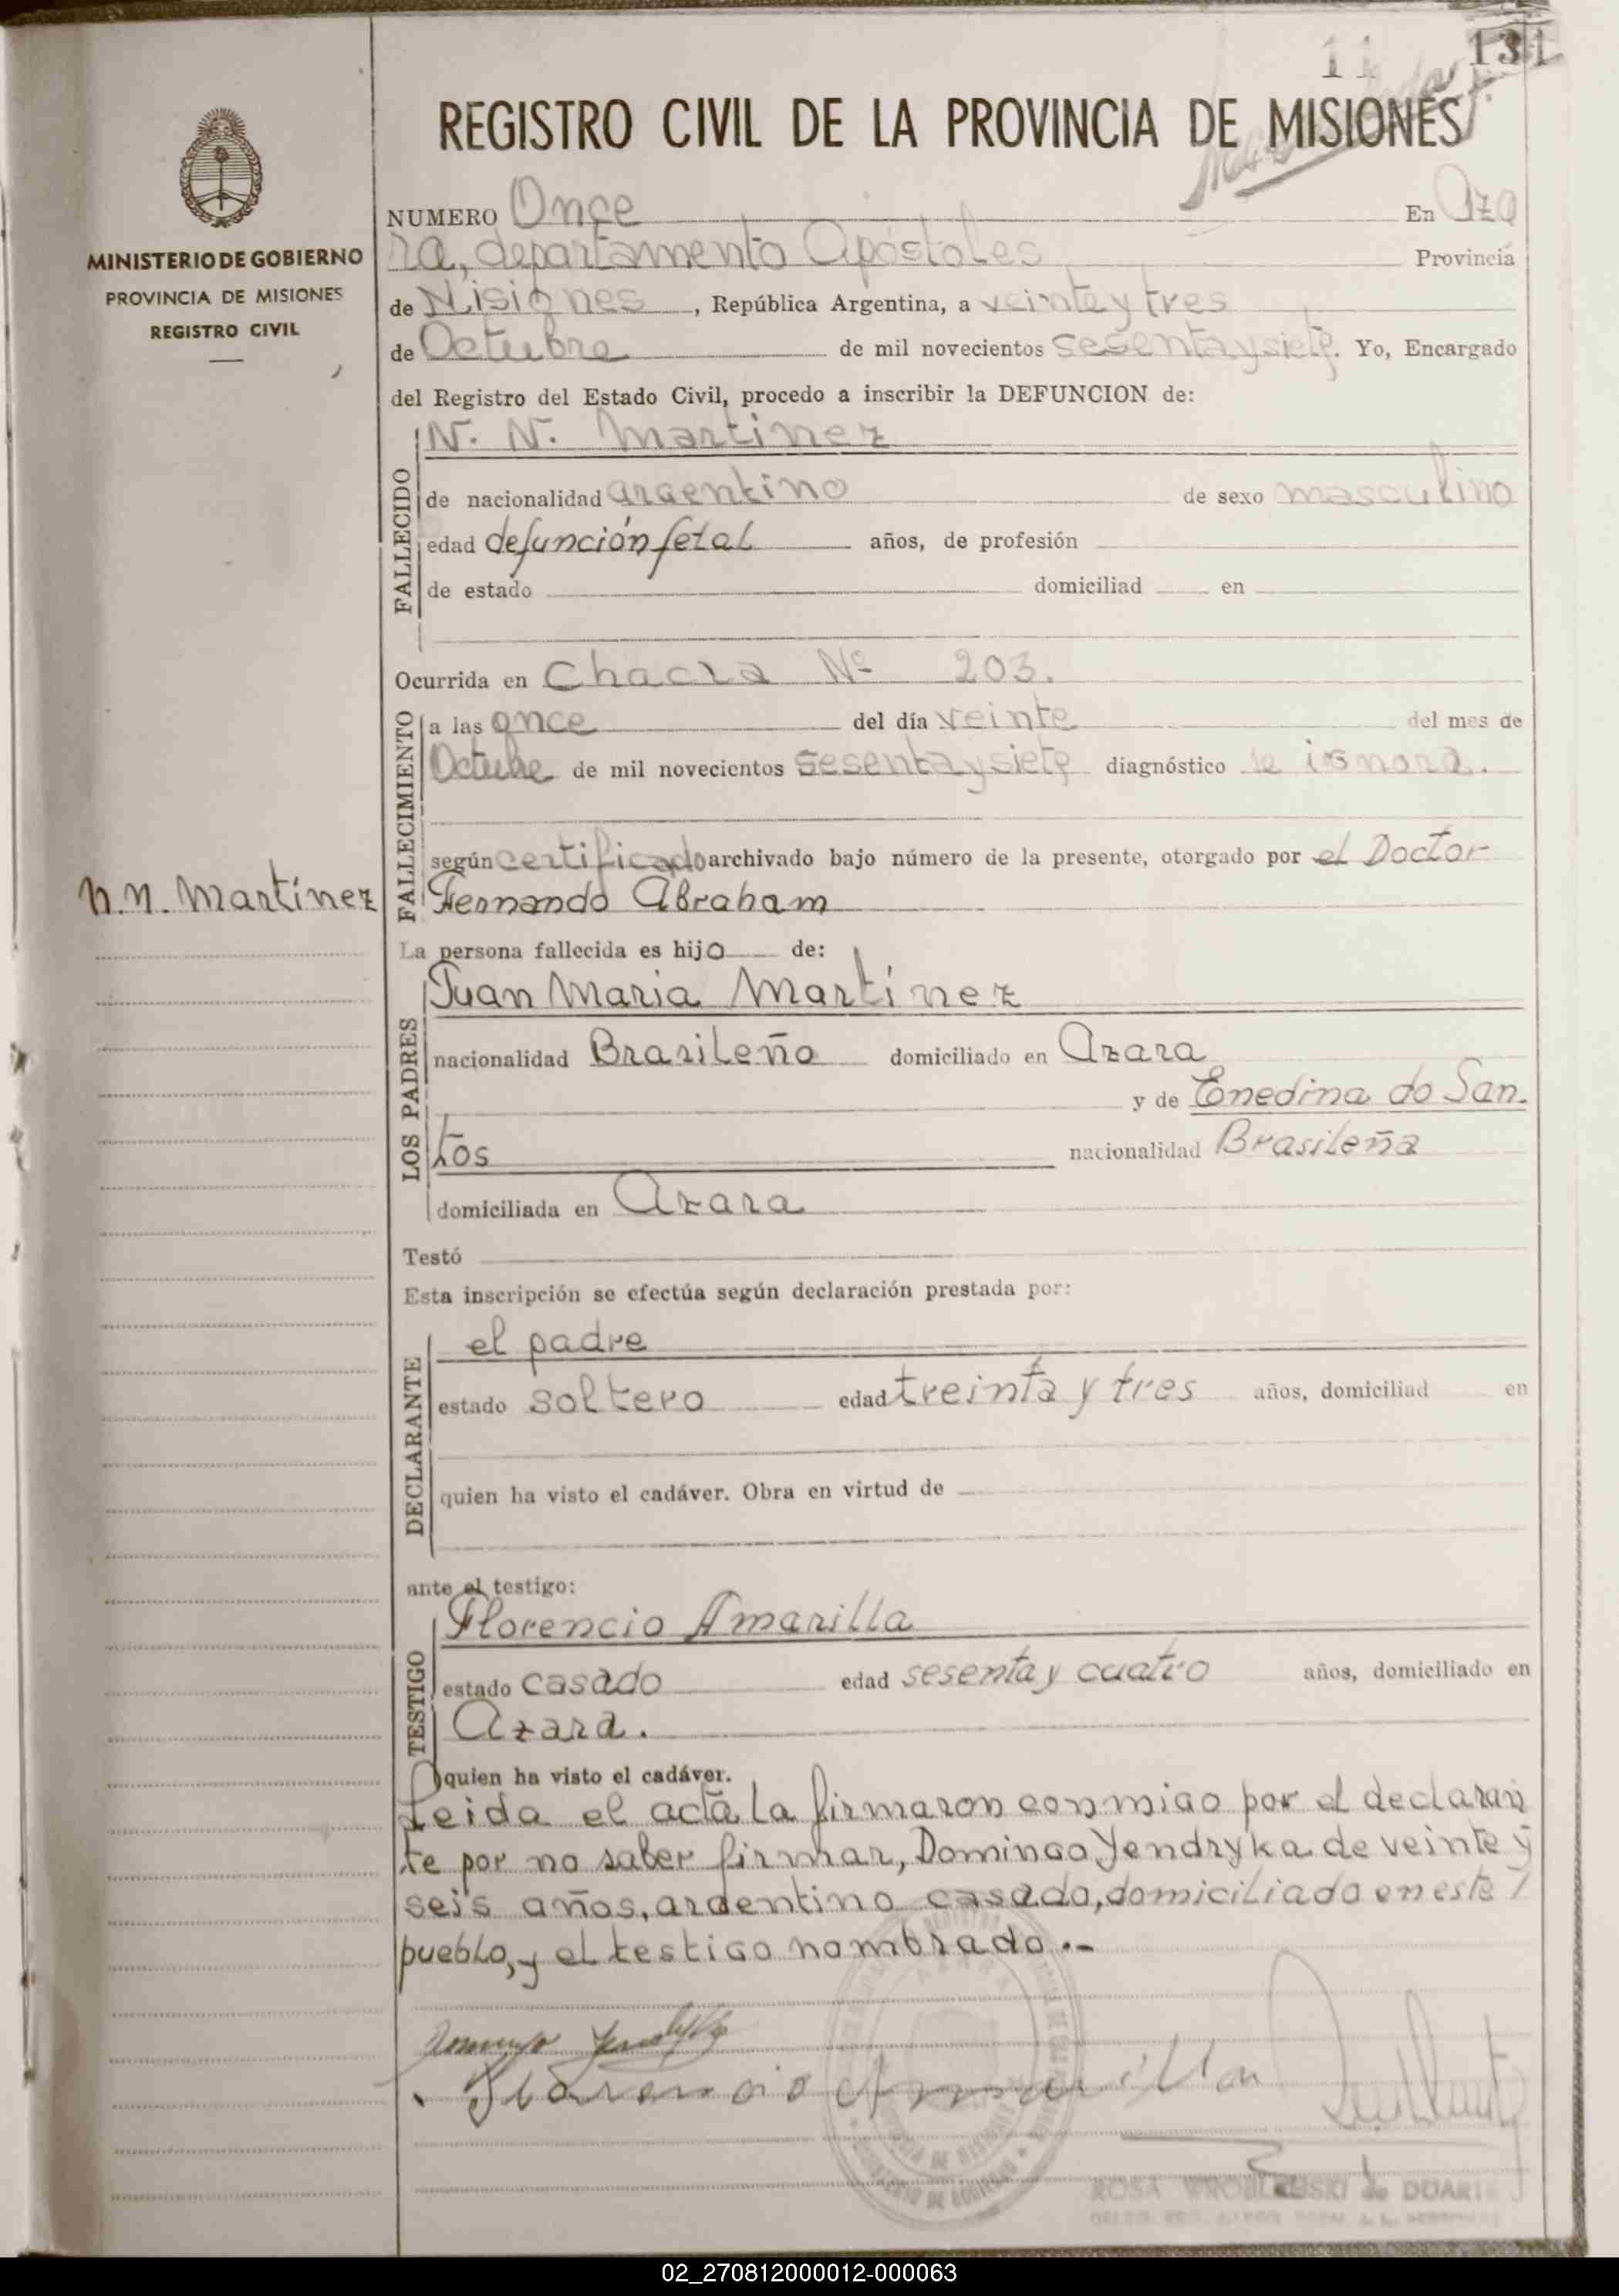 11 131
REGISTRO CIVIL DE LA PROVINCIA DE MISIONES
MINISTERIO DE GOBIERNO
PROVINCIA DE MISIONES
REGISTRO CIVIL
NUMERO Once En Aza
ra, departamento Apóstoles Provincia
de Misiones, República Argentina, a veinte y tres
de Octubre de mil novecientos sesenta y siete. Yo, Encargado
del Registro del Estado Civil, procedo a inscribir la DEFUNCION de:
FALLECIDO
N. N. Martinez
de nacionalidad argentino de sexo masculino
edad defunción fetal años, de profesión
de estado domiciliad en
Ocurrida en Chacra Nº 203.
FALLECIMIENTO
a las once del día veinte del mes de
Octubre de mil novecientos sesenta y siete diagnóstico se ignora.
según certificado archivado bajo número de la presente, otorgado por el Doctor
Fernando Abraham
N.N. Martínez
La persona fallecida es hijo de:
LOS PADRES
Juan Maria Martínez
nacionalidad Brasileño domiciliado en Azara
y de Enedina do San-
tos nacionalidad Brasileña
domiciliada en Azara
Testó
Esta inscripción se efectúa según declaración prestada por:
DECLARANTE
el padre
estado soltero edad treinta y tres años, domiciliad en
quien ha visto el cadáver. Obra en virtud de
ante el testigo:
TESTIGO
Florencio Amarilla
estado casado edad sesenta y cuatro años, domiciliado en
Azara.
quien ha visto el cadáver.
Leida el acta la firmaron conmigo por el declaran
te por no saber firmar, Domingo Yendryka de veinte y
seis años, argentino casado, domiciliado en este
pueblo, y el testigo nombrado.-
Florencio Amarilla
ROSA WROBLEWSKI de DUARTE
02_270812000012-000063